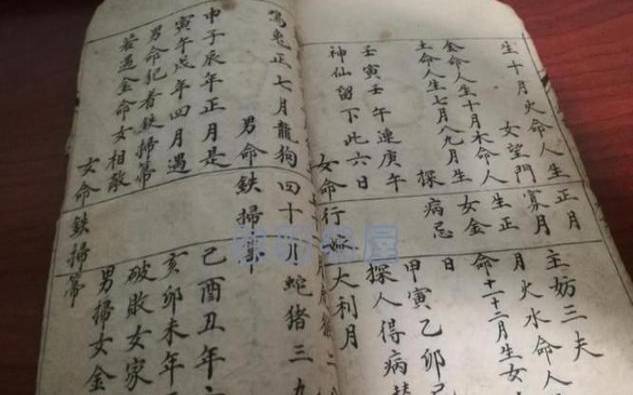 生十月火命人生正月
女望門寡 主妨三夫
金命人生十月木命人生正月火水命人
土命人生七月八九月生女金命十一十二月生女
探病忌日
壬寅壬午連庚午甲寅乙卯己
神仙留下此六日探人得病
女命行嫁大利月
兔正七月龍狗四十月蛇猪三九
男命鉄掃箒
申子辰年正月是己酉丑年
寅午戌年四月遇亥卯未年
男命犯着鉄掃箒破敗女家
若逢金命女相敵男掃女金
女命鉄掃箒